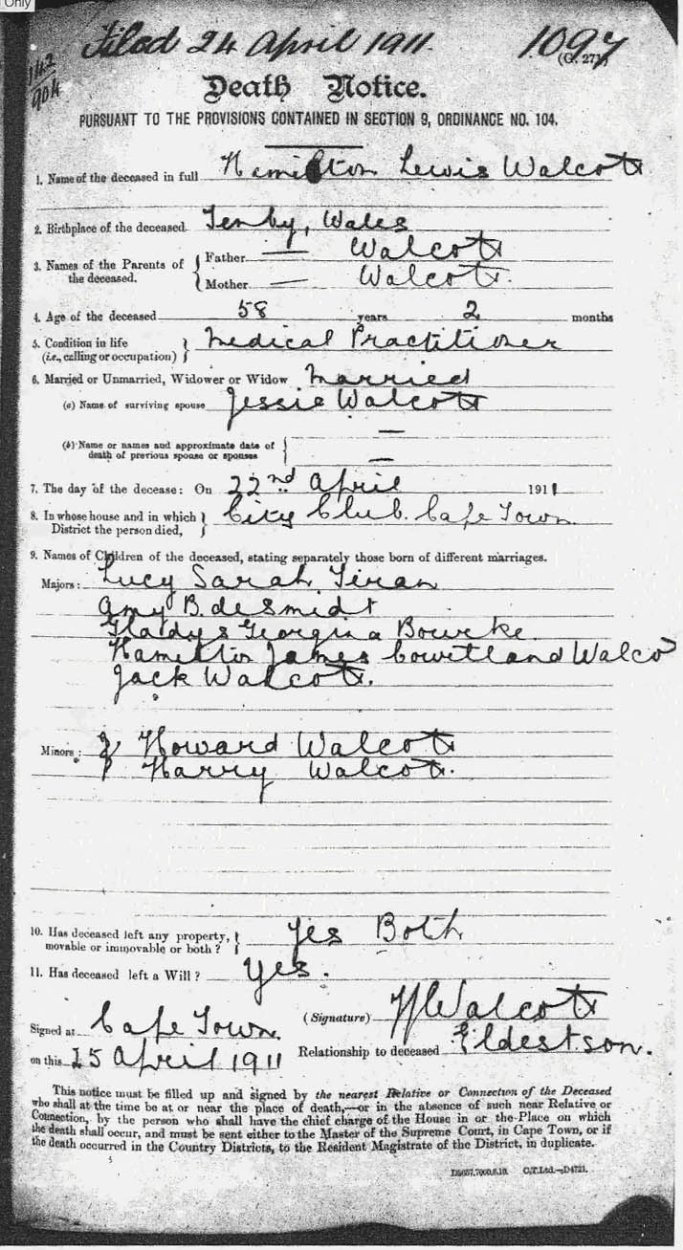 Only
Filed 24 April 1911. 1097
(G. 27)
142
904
Death Notice.
PURSUANT TO THE PROVISIONS CONTAINED IN SECTION 9, ORDINANCE NO. 104.
1. Name of the deceased in full Hamilton Lewis Walcott
2. Birthplace of the deceased Tenby, Wales
3. Names of the Parents of the deceased. { Father — Walcott
Mother — Walcott.
4. Age of the deceased 58 years 2 months
5. Condition in life (i.e., calling or occupation) } Medical Practitioner
6. Married or Unmarried, Widower or Widow Married
(a) Name of surviving spouse Jessie Walcott
(b) Name or names and approximate date of death of previous spouse or spouses } —
—
7. The day of the decease: On 22nd April 1911
8. In whose house and in which District the person died, } City Club. Cape Town
9. Names of Children of the deceased, stating separately those born of different marriages.
Majors: Lucy Sarah Tiran
Amy B. deSmidt
Gladys Georgina Bourke
Hamilton James Walco
Jack Walcott.
Minors: Howard Walcott
Harry Walcott.
10. Has deceased left any property, movable or immovable or both? } Yes Both
11. Has deceased left a Will? Yes.
Signed at Cape Town (Signature) HJWalcott
on this 25 April 1911 Relationship to deceased Eldest son.
This notice must be filled up and signed by the nearest Relative or Connection of the Deceased
who shall at the time be at or near the place of death,—or in the absence of such near Relative or
Connection, by the person who shall have the chief charge of the House in or the Place on which
the death shall occur, and must be sent either to the Master of the Supreme Court, in Cape Town, or if
the death occurred in the Country Districts, to the Resident Magistrate of the District, in duplicate.
C.T.Ltd.—D4721.